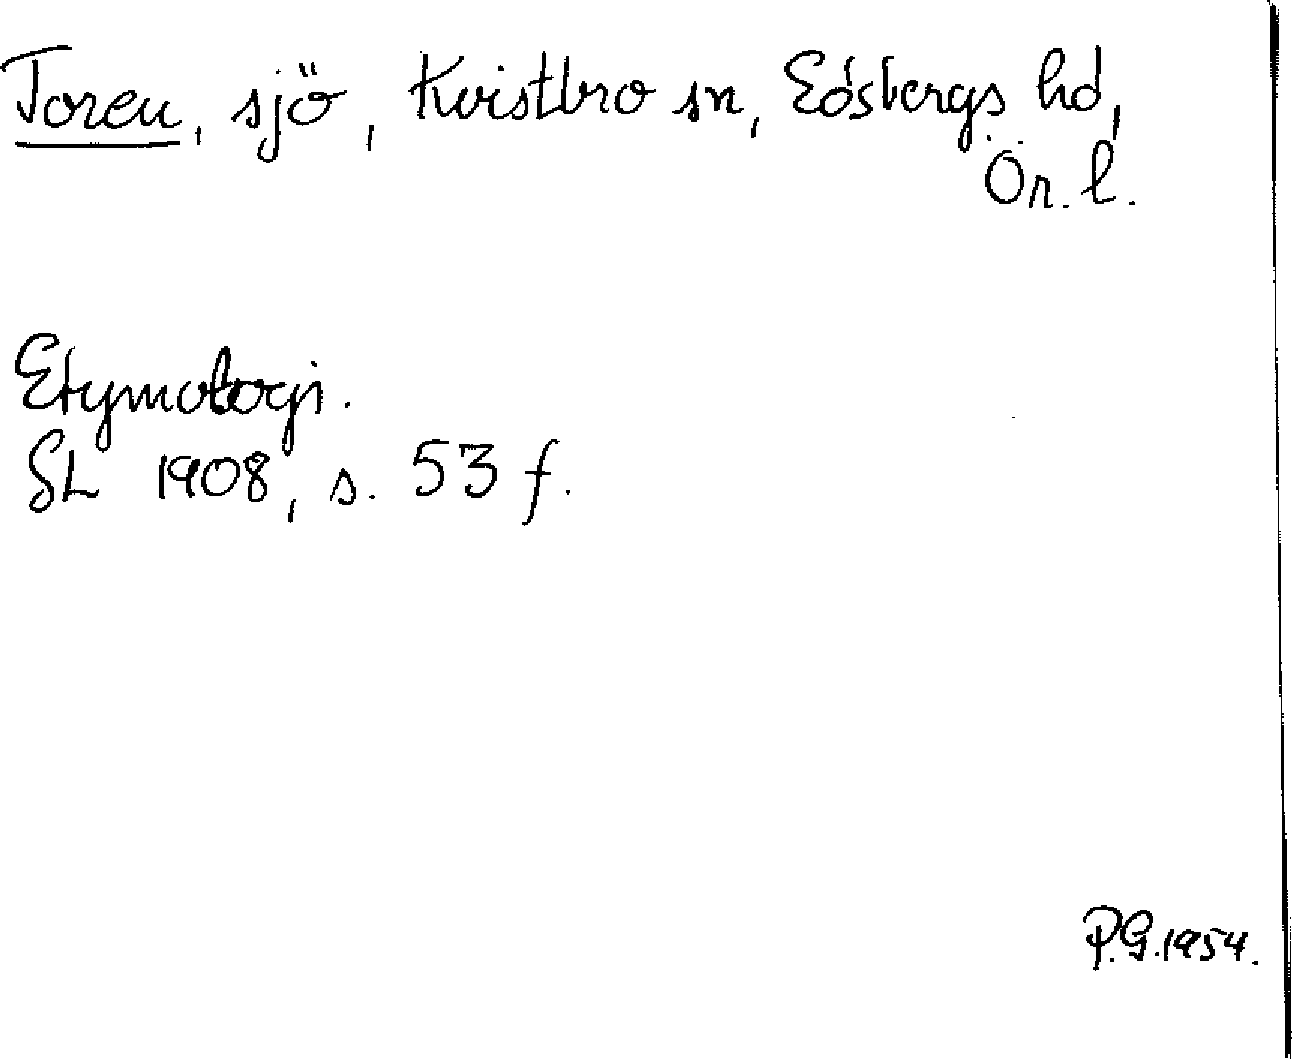 Toren, sjö, Kvistbro sn, Edsbergs hd,
Ör. l.
Etymologi.
SL 1908, s. 53 f.
P.G. 1954.